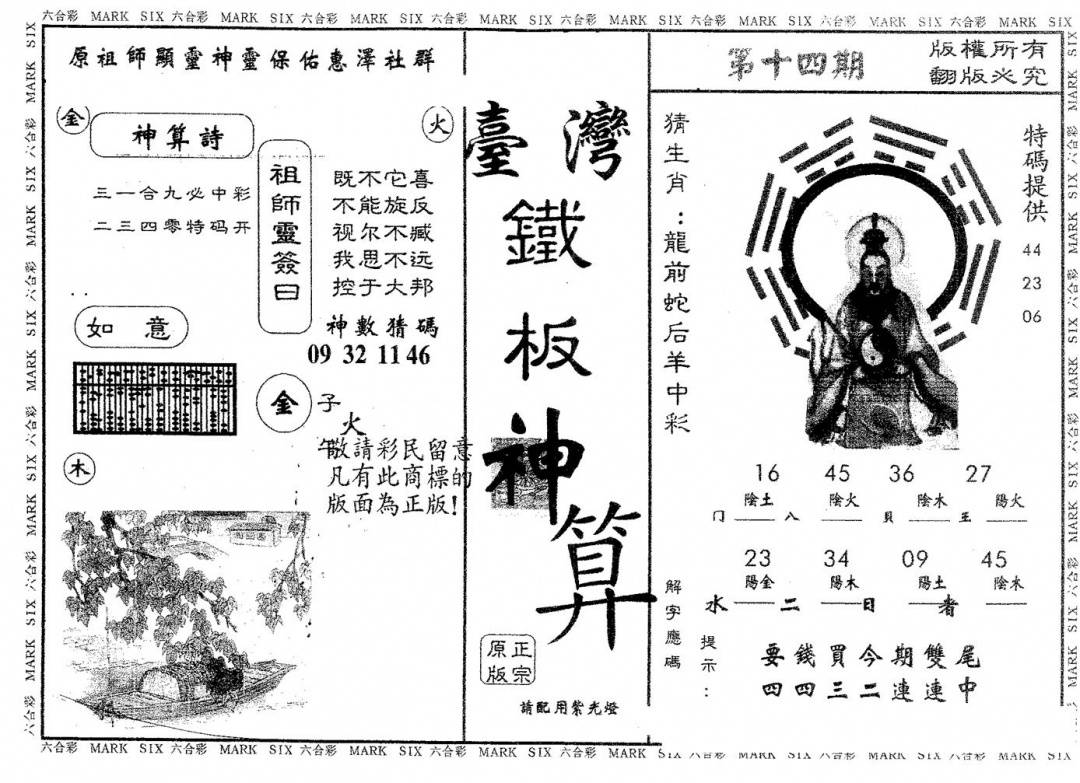 六合彩 MARK SIX 六合彩 MARK SIX 六合彩 MARK SIX 六合彩 MARK SIX 六合彩 MARK SIX 六合彩 MARK SIX 六合彩 MARK SIX 六合彩 MARK SIX
原祖師顯靈神靈保佑惠澤社群
金
神算詩
火
三一合九必中彩
二三四零特码开
祖師靈簽曰
既不它喜
不能旋反
视尔不臧
我思不远
控于大邦
神數猜碼
09 32 11 46
如意
金
子
火
午
敬請彩民留意
凡有此商標的
版面為正版!
木
臺灣
鐵
板
神
算
正宗
原版
請配用紫光燈
第十四期
版權所有
翻版必究
猜生肖:龍前蛇后羊中彩
特碼提供
44
23
06
16 45 36 27
陰土 陰火 陰木 陽火
门 八 貝 王
23 34 09 45
陽金 陽木 陽土 陰水
水 二 日 者
解字應碼
提示:
要錢買今期雙尾
四四三二連連中
六合彩 MARK SIX 六合彩 MARK SIX 六合彩 MARK SIX 六合彩 MARK SIX 六合彩 MARK SIX 六合彩 MARK SIX 六合彩 MARK SIX 六合彩 MARK SIX